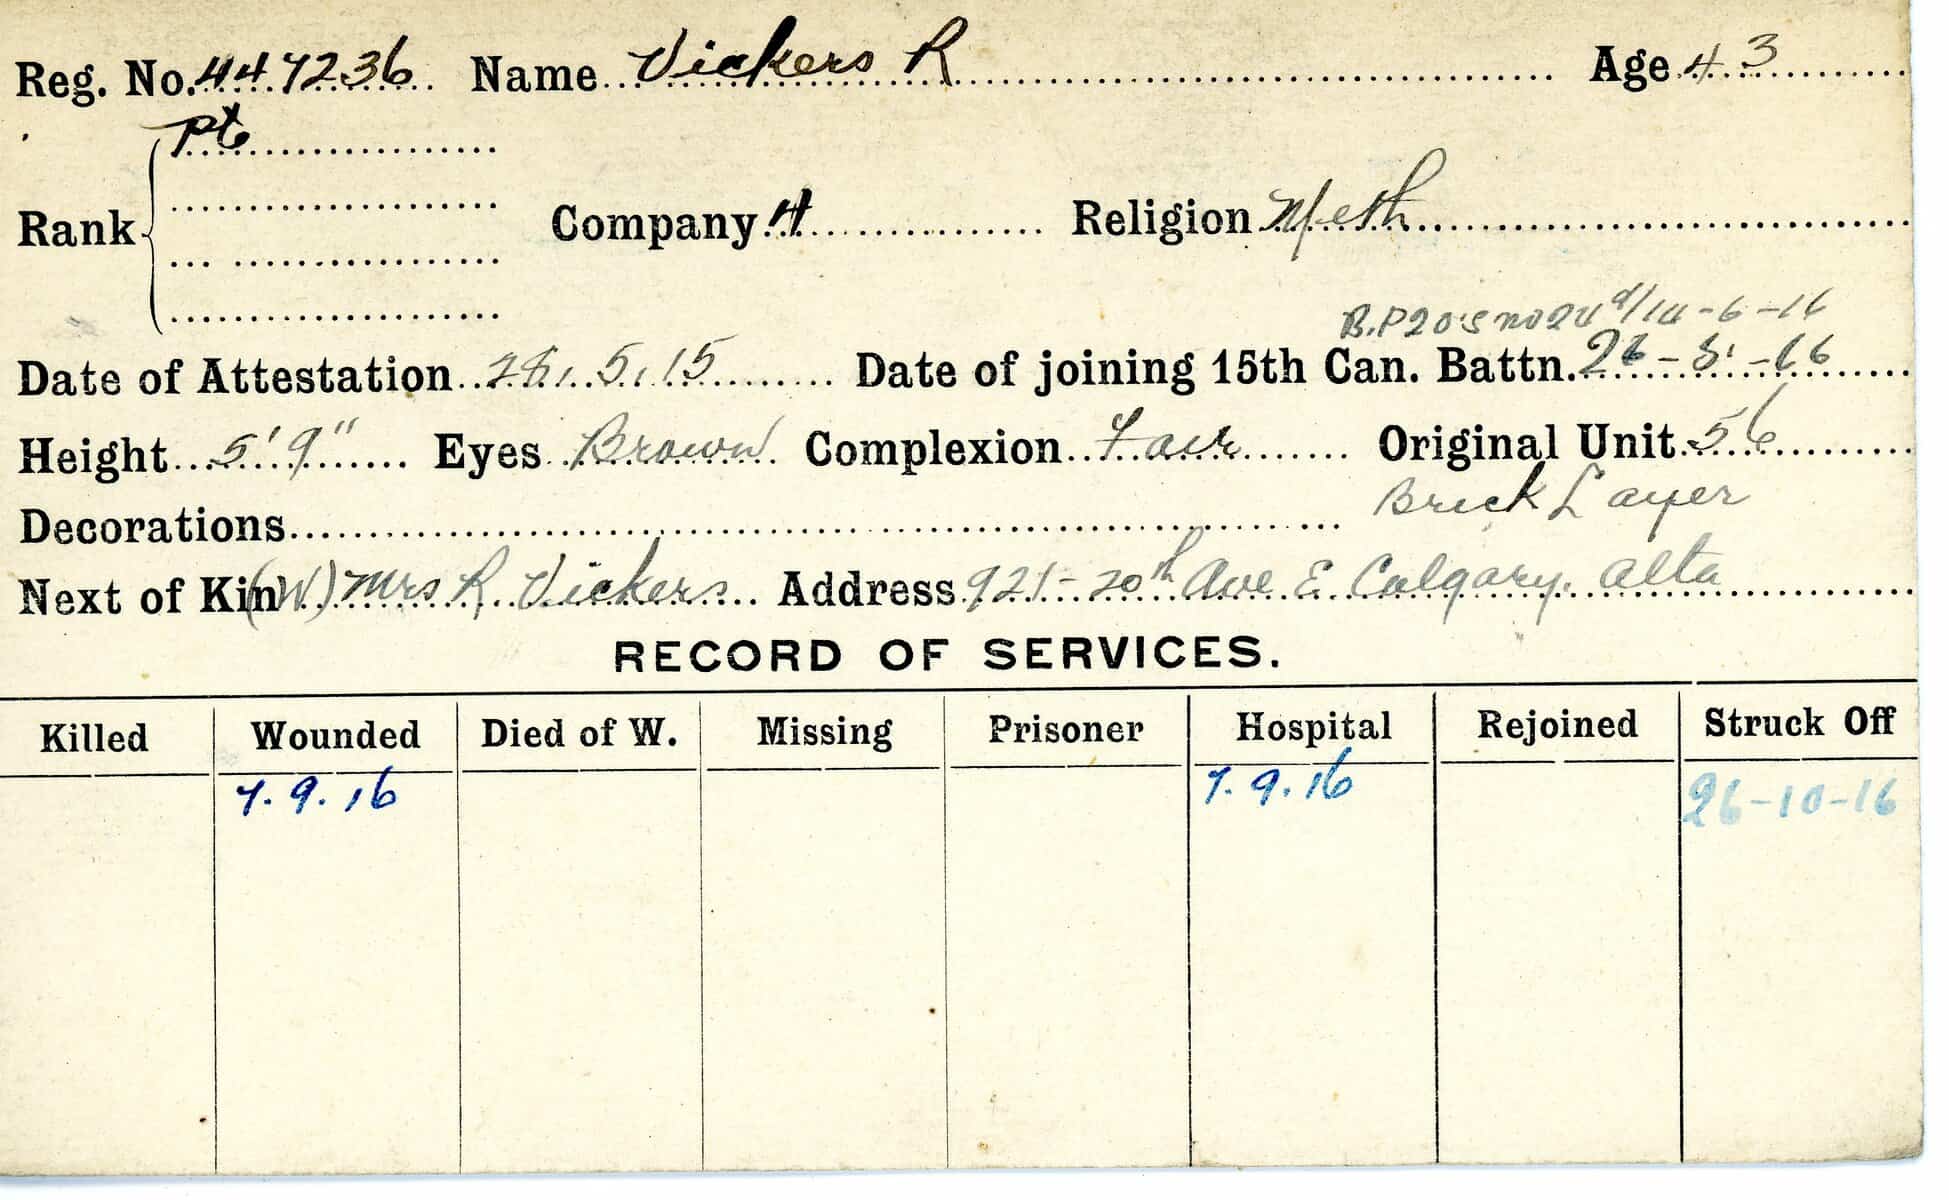 Reg. No. 447236 Name Vickers R Age 43
Pte
Rank Company 4 Religion Meth
B.P 20's no 24 d/14-6-16
Date of Attestation 28.5.15 Date of joining 15th Can. Battn. 28-5-16
Height 5'9" Eyes Brown Complexion Fair Original Unit 56
Decorations Brick Layer
Next of Kin (W) Mrs R Vickers Address 921-20th Ave E Calgary. Alta
RECORD OF SERVICES.
Killed Wounded Died of W. Missing Prisoner Hospital Rejoined Struck Off
7.9.16 7.9.16 26-10-16